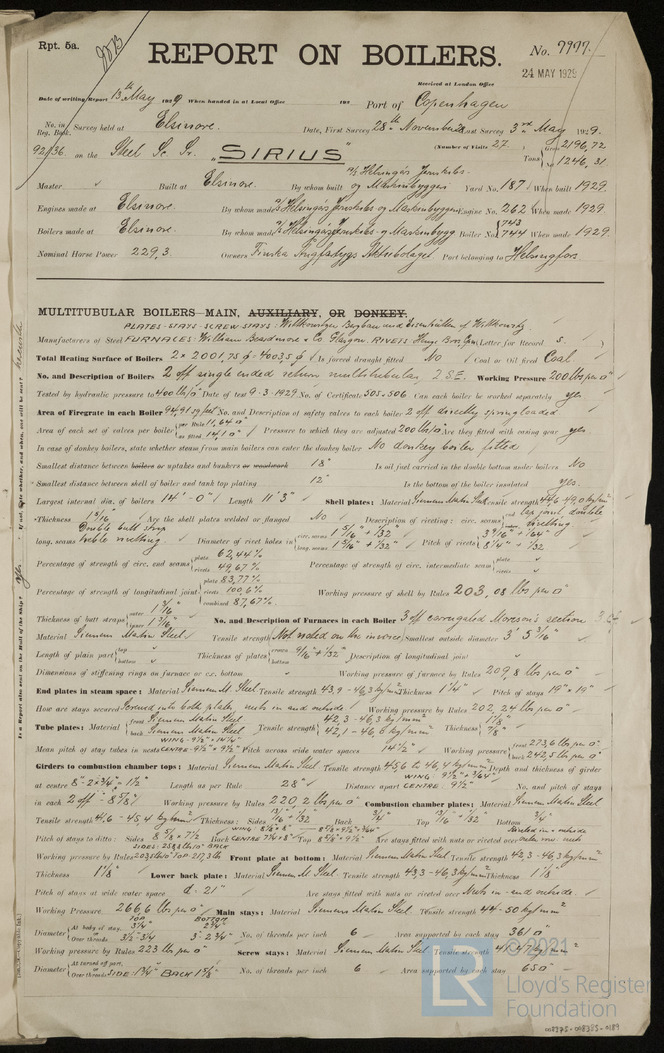 Rpt. 5a.
REPORT ON BOILERS.
No. 7997.
24 MAY 1929
Received at London Office
Date of writing Report 13th May 1929 When handed in at Local Office 192 Port of Copenhagen
No. in Reg. Book. Survey held at Elsinore. Date, First Survey 28th November Last Survey 3rd May 1929.
(Number of Visits 27
92/36 on the Steel Sc. Sr. "SIRIUS" Tons Gross 2196,72
Net 1246,31
Master Built at Elsinore. By whom built A/S Helsingørs Jernskibs- og Maskinbyggeri Yard No. 187 When built 1929.
Engines made at Elsinore. By whom made A/S Helsingørs Jernskibs- og Maskinbyggeri Engine No. 262 When made 1929
Boilers made at Elsinore. By whom made A/S Helsingørs Jernskibs- og Maskinbygg Boiler No. 743 744 When made 1929.
Nominal Horse Power 229,3. Owners Finska Ångfartygs Aktiebolaget Port belonging to Helsingfors
MULTITUBULAR BOILERS—MAIN, AUXILIARY, OR DONKEY.
PLATES-STAYS-SCREW-STAYS: Wittkowitzer Bergbau und Eisenhütten of Wittkowitz
Manufacturers of Steel FURNACES: William Beardmore & Co Glasgow RIVETS (Letter for Record S. )
Total Heating Surface of Boilers 2 × 2001,75 = 4003,5 Is forced draught fitted No Coal or Oil fired Coal
No. and Description of Boilers 2 off single ended return multitubular 2 SE. Working Pressure 200 lbs per □"
Tested by hydraulic pressure to 400 lb/□" Date of test 9-3-1929 No. of Certificate 505,506 Can each boiler be worked separately yes
Area of Firegrate in each Boiler 94,91 sq feet No. and Description of safety valves to each boiler 2 off directly spring loaded
Area of each set of valves per boiler per Rule 11,64 □" as fitted 14,1 □" Pressure to which they are adjusted 200 lb/□" Are they fitted with easing gear yes
In case of donkey boilers, state whether steam from main boilers can enter the donkey boiler No donkey boiler fitted
Smallest distance between boilers or uptakes and bunkers or woodwork 18" Is oil fuel carried in the double bottom under boilers No
Smallest distance between shell of boiler and tank top plating 12" Is the bottom of the boiler insulated yes.
Largest internal dia. of boilers 14'-0" Length 11' 3" Shell plates: Material Siemens Martin Steel Tensile strength 44,6-49,0 kg/mm²
Thickness 1 5/16" Are the shell plates welded or flanged No Description of riveting: circ. seams end lap joint double riveting
long. seams Double butt strap treble riveting Diameter of rivet holes in circ. seams 1 5/16" + 1/32 long. seams 1 5/16" + 1/32" Pitch of rivets 3 9/16" + 1/64" 8 1/4" + 1/32
Percentage of strength of circ. end seams plate 62,44% rivets 49,67% Percentage of strength of circ. intermediate seam plate rivets
Percentage of strength of longitudinal joint plate 83,77% rivets 100,6% combined 87,67% Working pressure of shell by Rules 203,08 lbs per □"
Thickness of butt straps outer 1 3/16" inner 1 3/16" No. and Description of Furnaces in each Boiler 3 off corrugated Morison's section
Material Siemens Martin Steel Tensile strength Not noted on the invoice Smallest outside diameter 3' 5 3/16"
Length of plain part top bottom Thickness of plates crown bottom 9/16" + 1/32" Description of longitudinal joint
Dimensions of stiffening rings on furnace or c.c. bottom Working pressure of furnace by Rules 209,8 lbs per □"
End plates in steam space: Material Siemens M. Steel Tensile strength 43,9-46,3 kg/mm² Thickness 1 1/4" Pitch of stays 19" × 19"
How are stays secured Screwed into both plates nuts in and outside Working pressure by Rules 202,24 lbs per □"
Tube plates: Material front Siemens Martin Steel back Siemens Martin Steel Tensile strength 42,3-46,3 kg/mm² 42,1-46,6 kg/mm² Thickness 1 1/8" 7/8"
Mean pitch of stay tubes in nests WING-9 1/2" × 14 1/4" CENTRE-9 1/2" × 9 1/2" Pitch across wide water spaces 14 1/2" Working pressure front 273,6 lbs per □" back 242,5 lbs per □"
Girders to combustion chamber tops: Material Siemens Martin Steel Tensile strength 45,6-46,4 kg/mm² Depth and thickness of girder
at centre 8"-2×3/4" = 1 1/2" Length as per Rule 28" Distance apart CENTRE: 9 1/2" No. and pitch of stays
in each 2 off - 8 5/8" Working pressure by Rules 220,2 lbs per □" Combustion chamber plates: Material Siemens Martin Steel
Tensile strength 41,6-45,4 kg/mm² Thickness: Sides Back 3/4" Top Bottom 3/4"
Pitch of stays to ditto: Sides 8 5/8 × 7 1/2 Back Top Are stays fitted with nuts or riveted over
Working pressure by Rules Front plate at bottom: Material Siemens Martin Steel Tensile strength 42,3-46,3 kg/mm²
Thickness 1 1/8" Lower back plate: Material Siemens M. Steel Tensile strength 43,3-46,3 kg/mm² Thickness 1 1/8"
Pitch of stays at wide water space 21" Are stays fitted with nuts or riveted over Nuts in- and outside.
Working Pressure 266,6 lbs per □" Main stays: Material Siemens Martin Steel Tensile strength 44-50 kg/mm²
Diameter At body of stay, or Over threads TOP 3 1/4" BOTTOM 2 3/4" No. of threads per inch 6 Area supported by each stay 361 □"
Working pressure by Rules 223 lbs per □" Screw stays: Material Siemens Martin Steel Tensile strength
Diameter At turned off part, or Over threads SIDE-1 3/4" BACK 1 5/8" No. of threads per inch 6 Area supported by each stay 65 □"
© 2021
LR
Lloyd's Register Foundation
008375-008385-0189